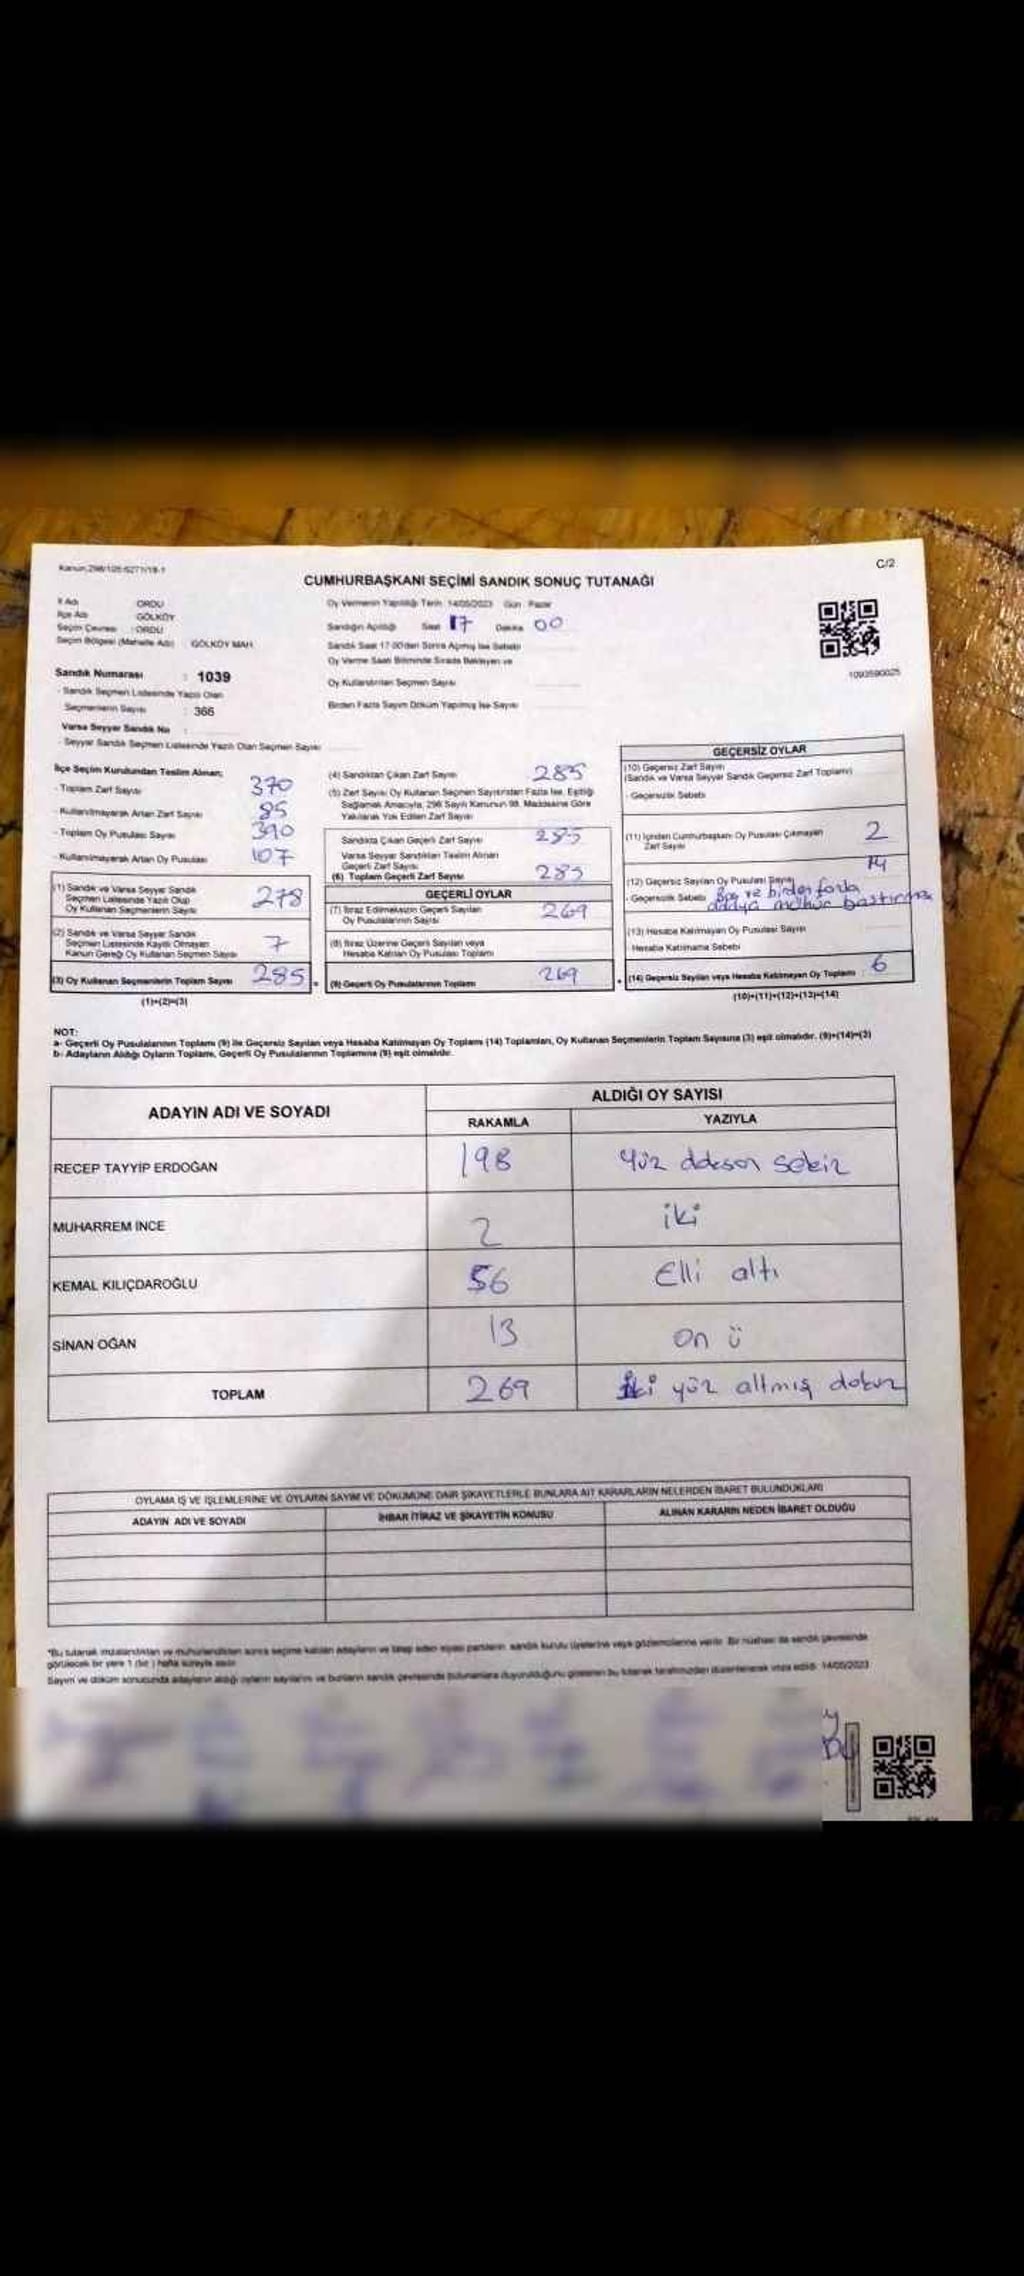 Kanun:298/105-6271/19-1
C/2
CUMHURBAŞKANI SEÇİMİ SANDIK SONUÇ TUTANAĞI
İl Adı : ORDU
İlçe Adı : GÖLKÖY
Seçim Çevresi : ORDU
Seçim Bölgesi (Mahalle Adı) : GÖLKÖY MAH.
Oy Vermenin Yapıldığı Tarih: 14/05/2023 Gün Pazar
Sandığın Açıldığı Saat 17 Dakika 00
Sandık Saat 17:00'den Sonra Açılmış İse Sebebi
Oy Verme Saati Bitiminde Sırada Bekleyen ve
Oy Kullandırılan Seçmen Sayısı
Birden Fazla Sayım Döküm Yapılmış İse Sayısı
1093590025
Sandık Numarası : 1039
- Sandık Seçmen Listesinde Yazılı Olan
Seçmenlerin Sayısı : 366
Varsa Seyyar Sandık No :
- Seyyar Sandık Seçmen Listesinde Yazılı Olan Seçmen Sayısı
İlçe Seçim Kurulundan Teslim Alınan;
- Toplam Zarf Sayısı 370
- Kullanılmayarak Artan Zarf Sayısı 85
- Toplam Oy Pusulası Sayısı 390
- Kullanılmayarak Artan Oy Pusulası 107
(1) Sandık ve Varsa Seyyar Sandık
Seçmen Listesinde Yazılı Olup
Oy Kullanan Seçmenlerin Sayısı 278
(2) Sandık ve Varsa Seyyar Sandık
Seçmen Listesinde Kayıtlı Olmayan
Kanun Gereği Oy Kullanan Seçmen Sayısı 7
(3) Oy Kullanan Seçmenlerin Toplam Sayısı 285
(1)+(2)=(3)
(4) Sandıktan Çıkan Zarf Sayısı 285
(5) Zarf Sayısı Oy Kullanan Seçmen Sayısından Fazla İse, Eşitliği
Sağlamak Amacıyla, 298 Sayılı Kanunun 98. Maddesine Göre
Yakılarak Yok Edilen Zarf Sayısı
Sandıkta Çıkan Geçerli Zarf Sayısı 285
Varsa Seyyar Sandıktan Teslim Alınan
Geçerli Zarf Sayısı
(6) Toplam Geçerli Zarf Sayısı 285
GEÇERLİ OYLAR
(7) İtiraz Edilmeksizin Geçerli Sayılan
Oy Pusulalarının Sayısı 269
(8) İtiraz Üzerine Geçerli Sayılan veya
Hesaba Katılan Oy Pusulası Toplamı
(9) Geçerli Oy Pusulalarının Toplamı 269
GEÇERSİZ OYLAR
(10) Geçersiz Zarf Sayısı
(Sandık ve Varsa Seyyar Sandık Geçersiz Zarf Toplamı)
- Geçersizlik Sebebi
(11) İçinden Cumhurbaşkanı Oy Pusulası Çıkmayan
Zarf Sayısı 2
(12) Geçersiz Sayılan Oy Pusulası Sayısı 14
- Geçersizlik Sebebi Boş ve birden fazla
adaya mühür bastırma
(13) Hesaba Katılmayan Oy Pusulası Sayısı
Hesaba Katılmama Sebebi
(14) Geçersiz Sayılan veya Hesaba Katılmayan Oy Toplamı 6
(10)+(11)+(12)+(13)=(14)
NOT:
a- Geçerli Oy Pusulalarının Toplamı (9) ile Geçersiz Sayılan veya Hesaba Katılmayan Oy Toplamı (14) Toplamları, Oy Kullanan Seçmenlerin Toplam Sayısına (3) eşit olmalıdır. (9)+(14)=(3)
b- Adayların Aldığı Oyların Toplamı, Geçerli Oy Pusulalarının Toplamına (9) eşit olmalıdır.
ADAYIN ADI VE SOYADI
ALDIĞI OY SAYISI
RAKAMLA YAZIYLA
RECEP TAYYİP ERDOĞAN 198 Yüz doksan sekiz
MUHARREM İNCE 2 iki
KEMAL KILIÇDAROĞLU 56 Elli altı
SİNAN OĞAN 13 on ü
TOPLAM 269 iki yüz altmış dokuz
OYLAMA İŞ VE İŞLEMLERİNE VE OYLARIN SAYIM VE DÖKÜMÜNE DAİR ŞİKAYETLERLE BUNLARA AİT KARARLARIN NELERDEN İBARET BULUNDUKLARI
ADAYIN ADI VE SOYADI İHBAR İTİRAZ VE ŞİKAYETİN KONUSU ALINAN KARARIN NEDEN İBARET OLDUĞU
*Bu tutanak imzalandıktan ve mühürlendikten sonra seçime katılan adayların ve talep eden siyasi partilerin sandık kurulu üyelerine veya gözlemcilerine verilir. Bir nüshası da sandık çevresinde
görülecek bir yere 1 (bir) hafta süreyle asılır.
Sayım ve döküm sonucunda adayların aldığı oyların sayılarını ve bunların sandık çevresinde bulunanlara duyurulduğunu gösteren bu tutanak tarafımızdan düzenlenerek imza edildi. 14/05/2023